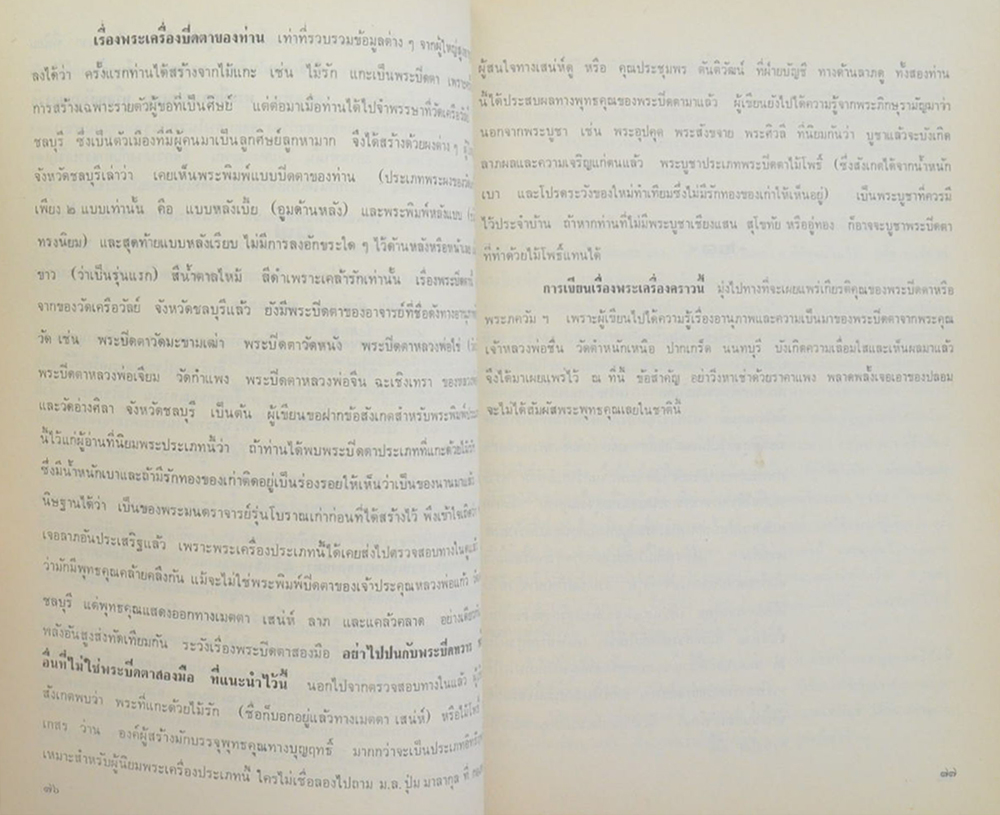 เรื่องพระเครื่องปิดตาของท่าน เท่าที่รวบรวมข้อมูลต่าง ๆ จากผู้ใหญ่
ลงได้ว่า ครั้งแรกท่านได้สร้างจากไม้แกะ เช่น ไม้รัก แกะเป็นพระปิดตา
การสร้างเฉพาะรายตัวผู้ขอที่เป็นศิษย์ แต่ต่อมาเมื่อท่านได้ไปจำพรรษาที่วัดเครือวัลย์
ชลบุรี ซึ่งเป็นตัวเมืองที่มีผู้คนมาเป็นลูกศิษย์ลูกหามาก จึงได้สร้างด้วยผงต่าง ๆ
จังหวัดชลบุรีเล่าว่า เคยเห็นพระพิมพ์แบบปิดตาของท่าน (ประเภทพระผง
เพียง ๒ แบบเท่านั้น คือ แบบหลังเบี้ย (อูมด้านหลัง) และพระพิมพ์หลังแบบ
ทรงนิยม) และสุดท้ายแบบหลังเรียบ ไม่มีการลงอักขระใด ๆ ไว้ด้านหลังหรือหน้าเลย
ขาว (ว่าเป็นรุ่นแรก) สีน้ำตาลไหม้ สีดำเพราะเคล้ารักเท่านั้น เรื่องพระปิดตานี้
จากของวัดเครือวัลย์ จังหวัดชลบุรีแล้ว ยังมีพระปิดตาของอาจารย์ที่ชื่อดังทาง
วัด เช่น พระปิดตาวัดมะขามเฒ่า พระปิดตาวัดหนัง พระปิดตาหลวงพ่อไข่
พระปิดตาหลวงพ่อเจียม วัดกำแพง พระปิดตาหลวงพ่อจีน ฉะเชิงเทรา
และวัดอ่างศิลา จังหวัดชลบุรี เป็นต้น ผู้เขียนขอฝากข้อสังเกตสำหรับพระพิมพ์
นี้ไว้แก่ผู้อ่านที่นิยมพระประเภทนี้ว่า ถ้าท่านได้พบพระปิดตาประเภทที่แกะด้วยไม้รัก
ซึ่งมีน้ำหนักเบาและถ้ามีรักทองของเก่าติดอยู่เป็นร่องรอยให้เห็นว่าเป็นของนานมาแล้ว
นิษฐานได้ว่า เป็นของพระมนตราจารย์รุ่นโบราณเก่าก่อนที่ได้สร้างไว้ พึงเข้าใจเถิด
เจอลาภอันประเสริฐแล้ว เพราะพระเครื่องประเภทนี้ได้เคยส่งไปตรวจสอบทางใน
ว่ามักมีพุทธคุณคล้ายคลึงกัน แม้จะไม่ใช่พระพิมพ์ปิดตาของเจ้าประคุณหลวงพ่อแก้ว
ชลบุรี แต่พุทธคุณแสดงออกทางเมตตา เสน่ห์ ลาภ และแคล้วคลาด
พลังอันสูงส่งทัดเทียมกัน ระวังเรื่องพระปิดตาสองมือ อย่าไปปนกับพระปิดทวาร
อื่นที่ไม่ใช่พระปิดตาสองมือ ที่แนะนำไว้นี้ นอกไปจากตรวจสอบทางในแล้ว
สังเกตพบว่า พระที่แกะด้วยไม้รัก (ชื่อก็บอกอยู่แล้วทางเมตตา เสน่ห์) หรือไม้โพธิ์
เกสร ว่าน องค์ผู้สร้างมักบรรจุพุทธคุณทางบุญฤทธิ์ มากกว่าจะเป็นประเภท
เหมาะสำหรับผู้นิยมพระเครื่องประเภทนี้ ใครไม่เชื่อลองไปถาม ม.ล. ปุ่ม มาลากุล ที่
๗๖
ผู้สนใจทางเสน่ห์ดู หรือ คุณประชุมพร ตันติวัฒน์ ที่ฝ่ายบัญชี ทางด้านลาภดู ทั้งสองท่าน
นี้ได้ประสบผลทางพุทธคุณของพระปิดตามาแล้ว ผู้เขียนยังไปได้ความรู้จากพระภิกษุรามัญมาว่า
นอกจากพระบูชา เช่น พระอุปคุต พระสังขจาย พระศิวลี ที่นิยมกันว่า บูชาแล้วจะบังเกิด
ลาภผลและความเจริญแก่ตนแล้ว พระบูชาประเภทพระปิดตาไม้โพธิ์ (ซึ่งสังเกตได้จากน้ำหนัก
เบา และโปรดระวังของใหม่ทำเทียมซึ่งไม่มีรักทองของเก่าให้เห็นอยู่) เป็นพระบูชาที่ควรมี
ไว้ประจำบ้าน ถ้าหากท่านที่ไม่มีพระบูชาเชียงแสน สุโขทัย หรืออู่ทอง ก็อาจจะบูชาพระปิดตา
ที่ทำด้วยไม้โพธิ์แทนได้
การเขียนเรื่องพระเครื่องคราวนี้ มุ่งไปทางที่จะเผยแพร่เกียรติคุณของพระปิดตาหรือ
พระภควัม ฯ เพราะผู้เขียนไปได้ความรู้เรื่องอานุภาพและความเป็นมาของพระปิดตาจากพระคุณ
เจ้าหลวงพ่อชื่น วัดตำหนักเหนือ ปากเกร็ด นนทบุรี บังเกิดความเลื่อมใสและเห็นผลมาแล้ว
จึงได้มาเผยแพร่ไว้ ณ ที่นี้ ข้อสำคัญ อย่าวิ่งหาเช่าด้วยราคาแพง พลาดพลั้งเจอเอาของปลอม
จะไม่ได้สัมผัสพระพุทธคุณเลยในชาตินี้
๗๗